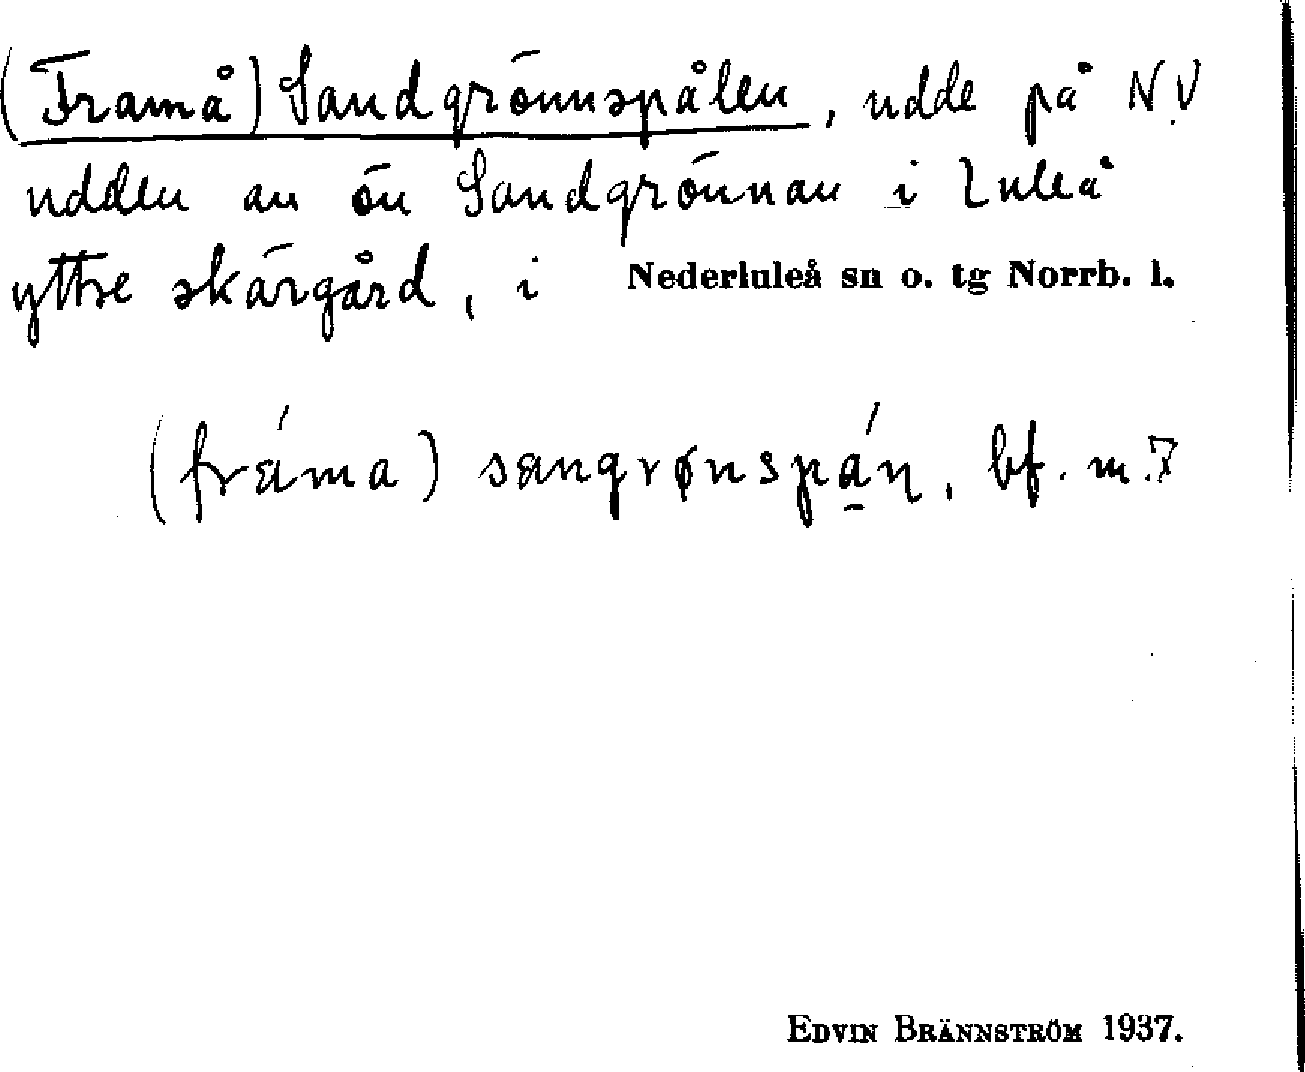 (Framå) Sandgrönnspålen, udde på N.V
udden av ön Sandgrönnan i Luleå
yttre skärgård, i Nederluleå sn o. tg Norrb. l.
(fráma) sanqrønspá̱ɳ, bf. m.?
EDVIN BRÄNNSTRÖM 1937.